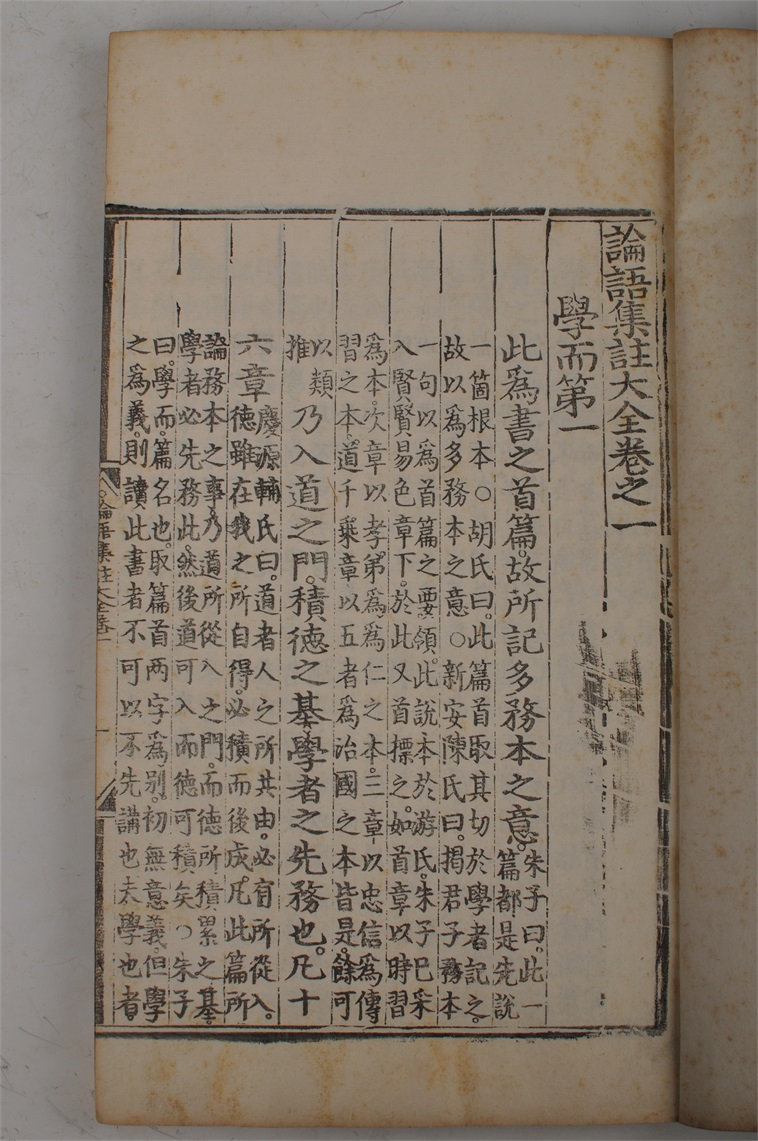 論語集註大全卷之一
學而第一
此爲書之首篇。故所記多務本之意。朱子曰。此一
篇都是先說
一箇根本〇胡氏曰。此篇首取其切於學者記之。
故以爲多務本之意〇新安陳氏曰。揭君子務本
一句以爲首篇之要領。此說本於游氏。朱子已采
入賢賢易色章下。於此又首標之。如首章以時習
爲本。次章以孝弟爲爲仁之本。三章以忠信爲傳
習之本。道千乘章以五者爲治國之本皆是。餘可
以類
推
乃入道之門。積德之基。學者之先務也。凡十
六章
慶源輔氏曰。道者人之所共由。必有所從入。
德雖在我之所自得。必積而後成。凡此篇所
論務本之事。乃道所從入之門。而德所積累之基。
學者必先務此。然後道可入而德可積矣〇朱子
曰。學而。篇名也。取篇首兩字爲别。初無意義。但學
之爲義。則讀此書者不可以不先講也夫學也者。
論語集註大全卷一
一